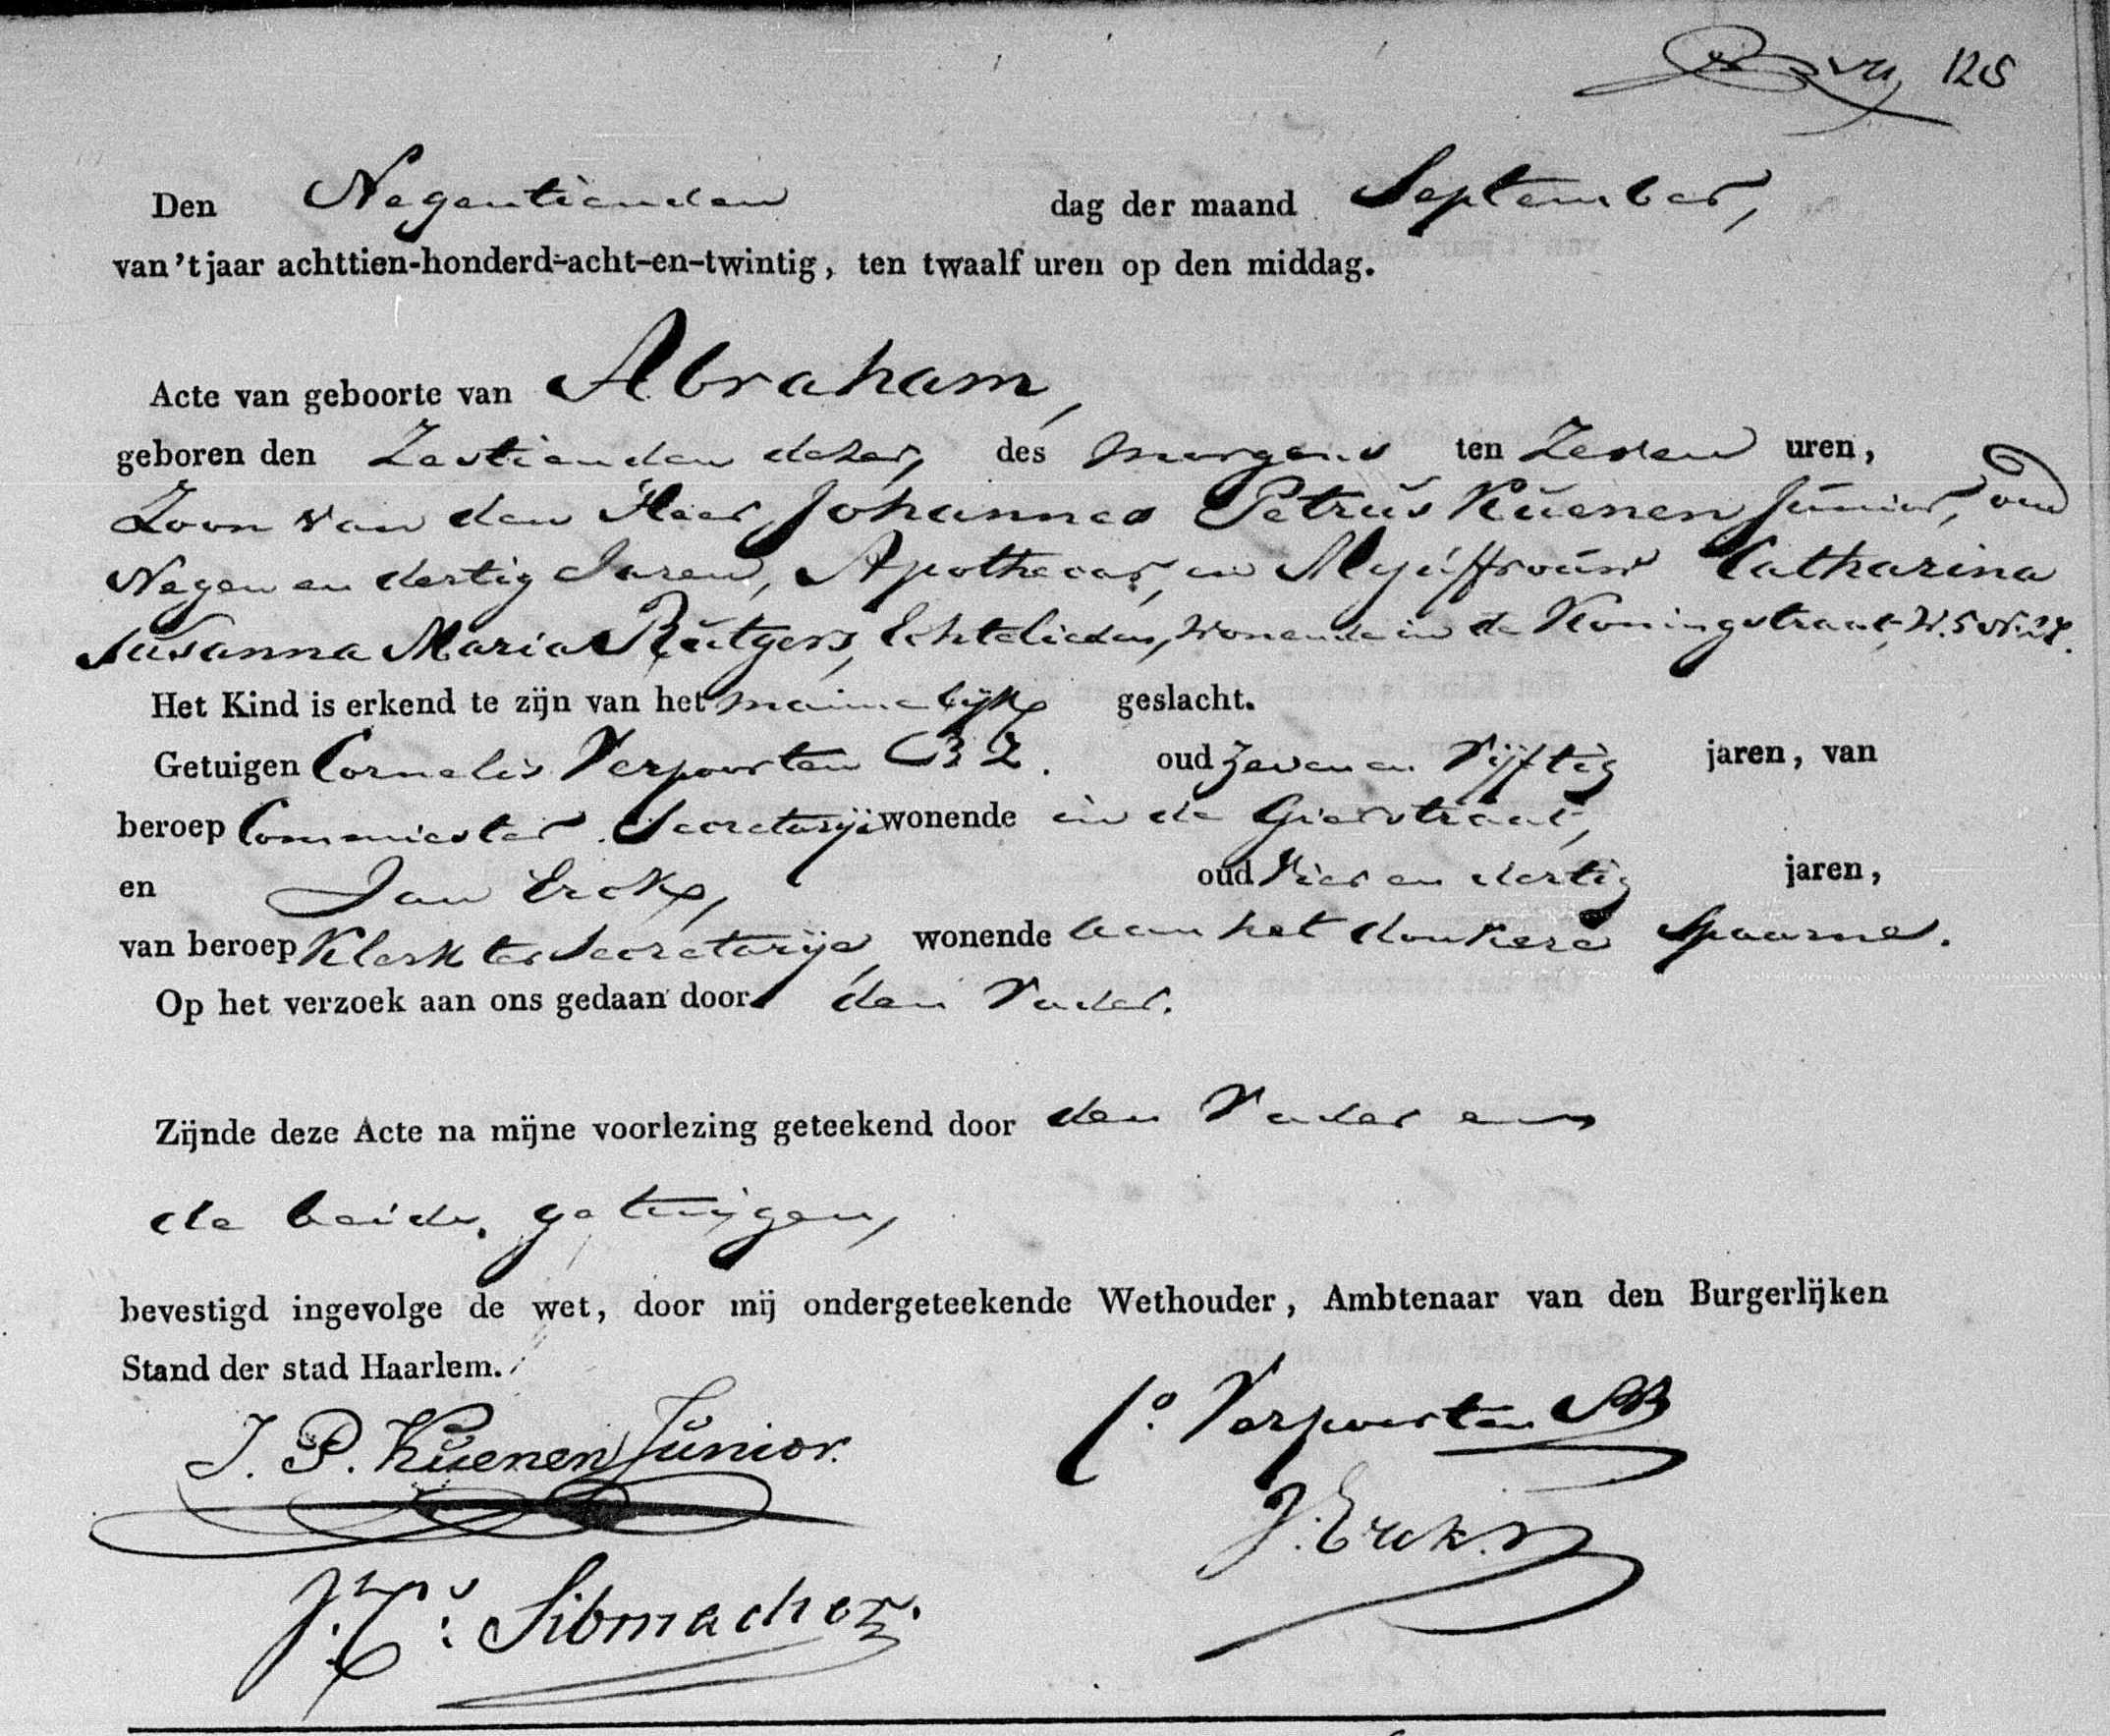 125
Den Negentienden dag der maand September,
van 't jaar achttien-honderd-acht-en-twintig, ten twaalf uren op den middag.
Acte van geboorte van Abraham,
geboren den Zestienden dezer, des morgens ten Zeven uren,
Zoon van den Heer Johannes Petrus Kuenen Junior, oud
Negen en dertig Jaren, Apothecar, en Mejuffrouw Catharina
Susanna Maria Rutgers, Echtelieden, wonende in de Koningstraat, W. 5 N. 28.
Het Kind is erkend te zijn van het mannelijk geslacht.
Getuigen Cornelis Verpoorten BZ. oud zeven en Vijftig jaren, van
beroep Commies ter Secretarije wonende in de Gierstraat,
en Jan Erck, oud Vier en dertig jaren,
van beroep Klerk ter Secretarije, wonende aan het donkere Spaarne.
Op het verzoek aan ons gedaan door den Vader.
Zijnde deze Acte na mijne voorlezing geteekend door den Vader en
de beide getuigen,
bevestigd ingevolge de wet, door mij ondergeteekende Wethouder, Ambtenaar van den Burgerlijken
Stand der stad Haarlem.
J. P. Kuenen Junior. Co. Verpoorten
J. Erck
Sibmacher.